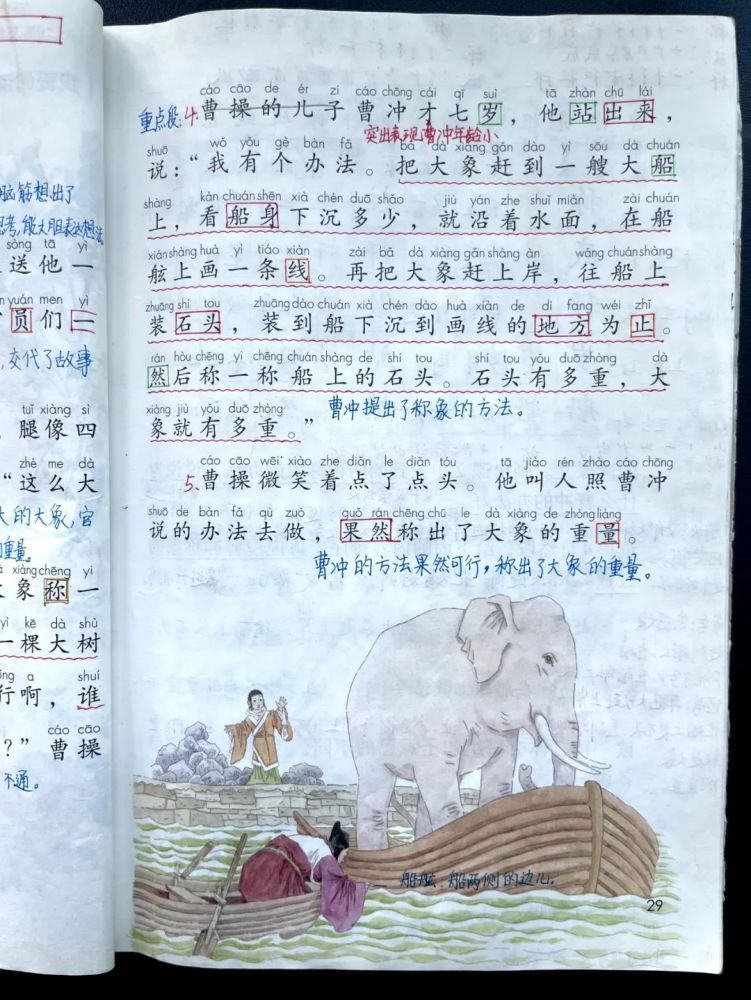 脑筋想出了
思考,能大胆表达想法
sòng tā yì
送他一
yuán men yì
员们一
,交代了故事
tuǐ xiàng sì
,腿像四
zhè me dà
“这么大
大的大象,官
重量
xiàng chēng yi
象称一
yì kē dà shù
一棵大树
a shuí
行啊,谁
cáo cāo
?”曹操
不通。
cáo cāo de ér zi cáo chōng cái qī suì tā zhàn chū lái
重点段:4.曹操的儿子曹冲才七岁,他站出来,
突出表现了曹冲年龄小
shuō wǒ yǒu gè bàn fǎ bǎ dà xiàng gǎn dào yì sōu dà chuán
说:“我有个办法。把大象赶到一艘大船
shàng kàn chuán shēn xià chén duō shǎo jiù yán zhe shuǐ miàn zài chuán
上,看船身下沉多少,就沿着水面,在船
xián shàng huà yì tiáo xiàn zài bǎ dà xiàng gǎn shàng àn wǎng chuán shàng
舷上画一条线。再把大象赶上岸,往船上
zhuāng shí tou zhuāng dào chuán xià chén dào huà xiàn de dì fang wéi zhǐ
装石头,装到船下沉到画线的地方为止。
rán hòu chēng yi chēng chuán shàng de shí tou shí tou yǒu duō zhòng dà
然后称一称船上的石头。石头有多重,大
xiàng jiù yǒu duō zhòng
象就有多重。”
曹冲提出了称象的方法。
cáo cāo wēi xiào zhe diǎn le diǎn tóu tā jiào rén zhào cáo chōng
5.曹操微笑着点了点头。他叫人照曹冲
shuō de bàn fǎ qù zuò guǒ rán chēng chū le dà xiàng de zhòng liàng
说的办法去做,果然称出了大象的重量。
曹冲的方法果然可行,称出了大象的重量。
船舷:船两侧的边儿。
29